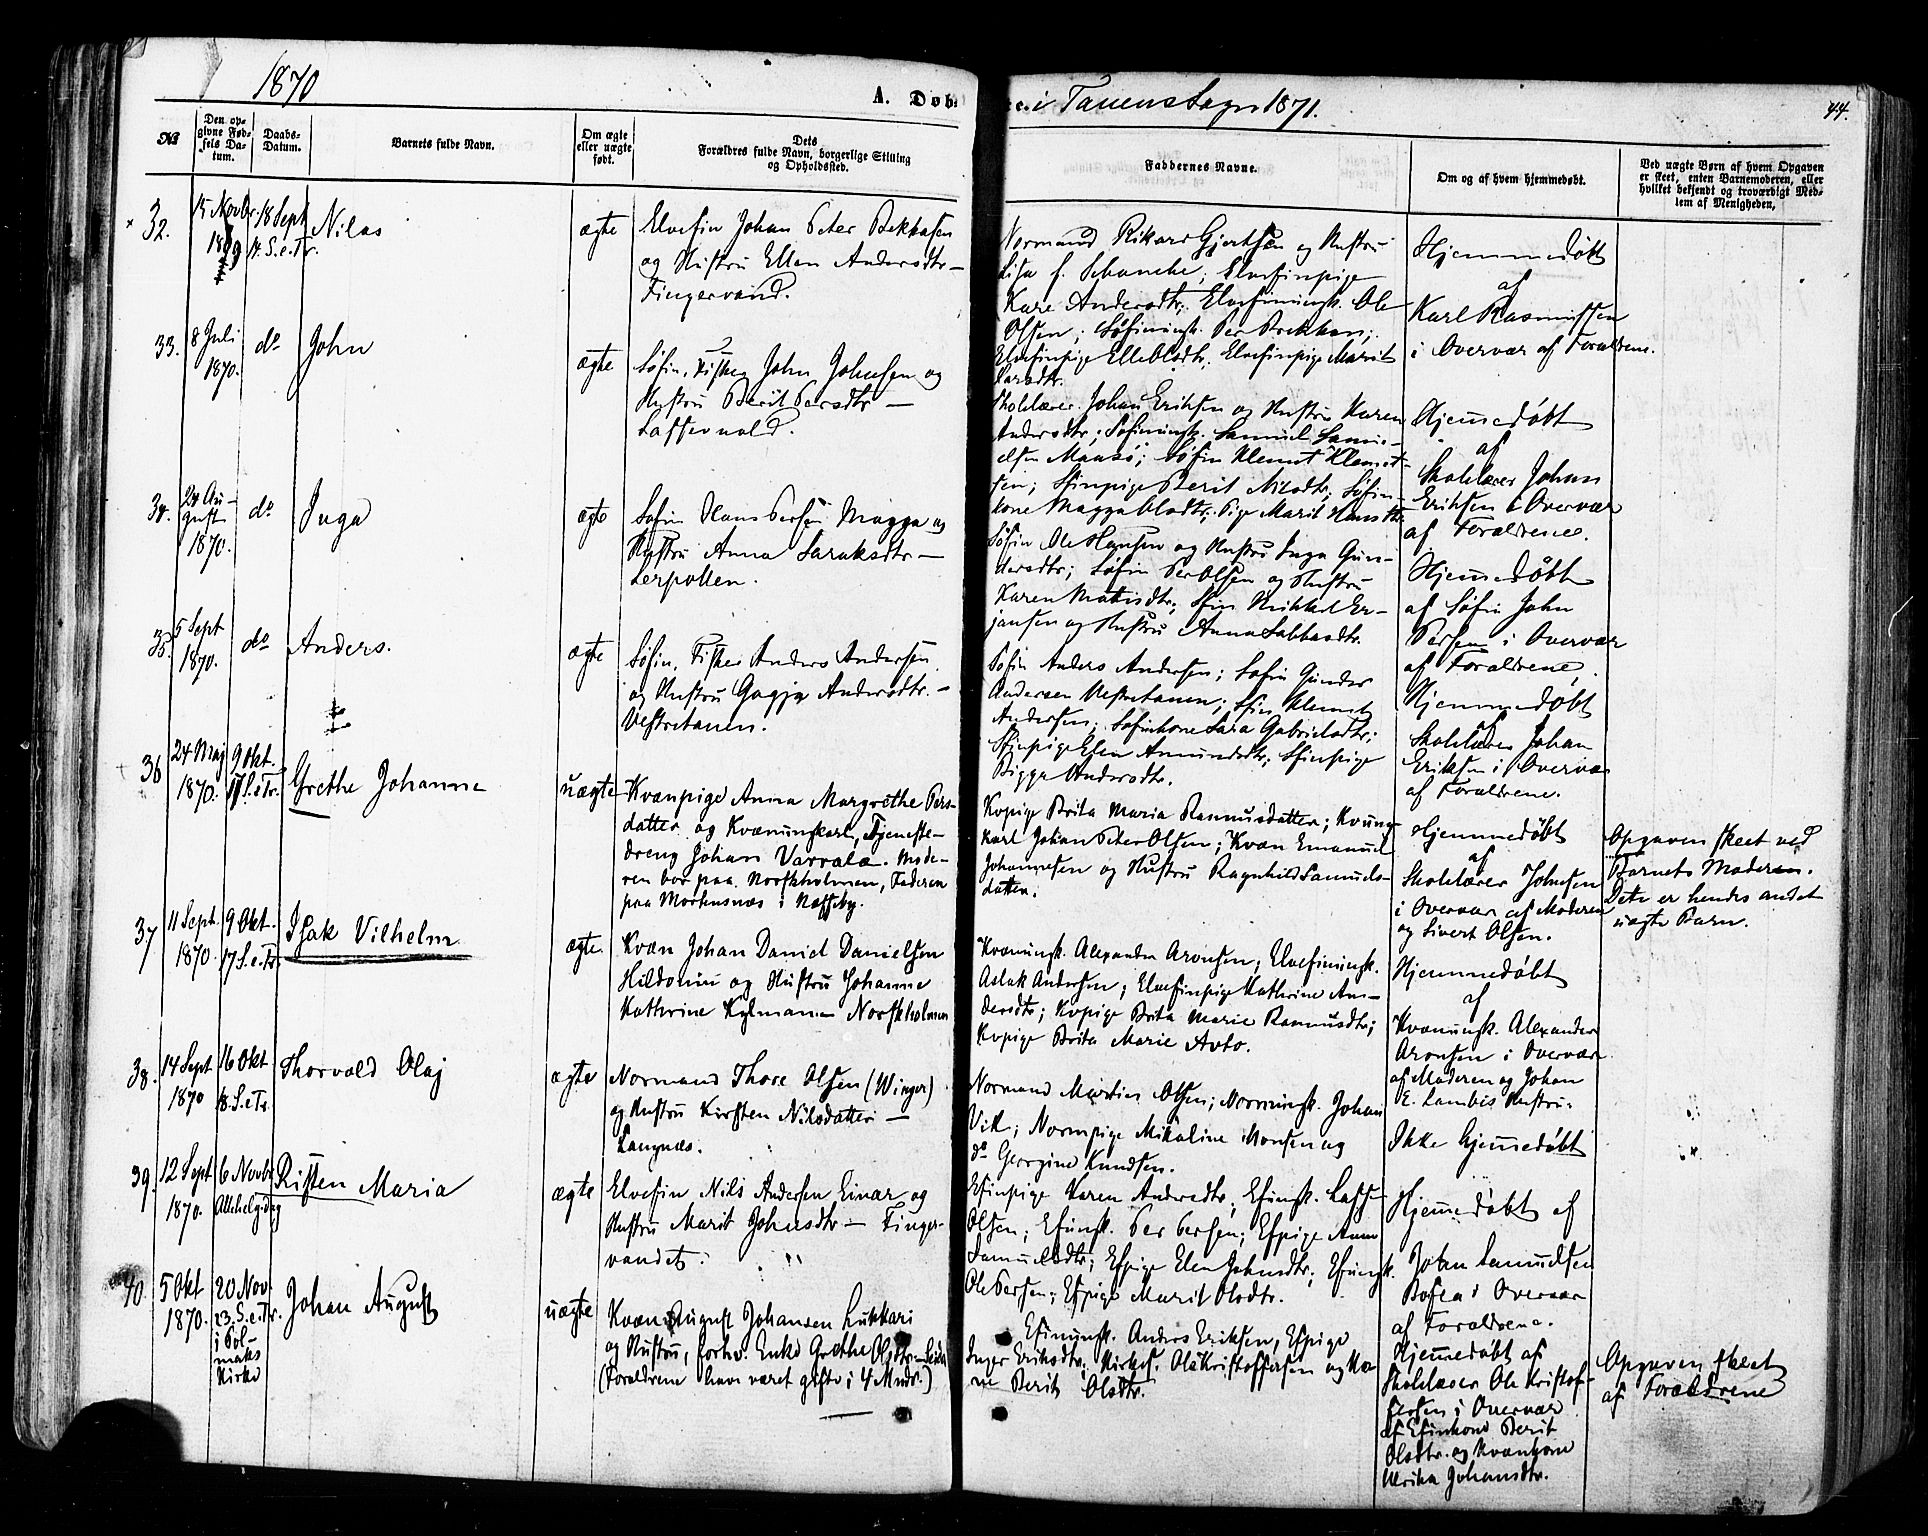 1870
A. Døbte i Tanens Sogn 1871.
44.
No
Den op-
givne Fød-
sels Da-
tum.
Daabs-
Datum.
Barnets fulde Navn.
Om ægte
eller uægte
født.
Dets
Forældres fulde Navn, borgerlige Stilling
og Opholdssted.
Faddernes Navne.
Om og af hvem hjemmedøbt.
Ved uægte Børn af hvem Opgaven
er skeet, enten Barnemoderen, eller
hvilket bekjendt og troværdigt Med-
lem af Menigheden.
32.
15 Novbr
1869
18 Sept
14. S. e. Tr.
Nilas
ægte
Elvefin Johan Peter
og Hustru Ellen Andersdtr –
Fingervand.
Normand Rikard Gjertsen og Hustru
Lisa f. Schanche; Elvefinpige
Kare Andersdtr; Elvefinungk. Ole
Olsen; Søfinungk. Per
Elvefinpige; Elvefinpige Marit
Larsdtr.
Hjemmedøbt
af
Karl Rasmussen
i Overvær af Forældrene.
33.
8 Juli
1870.
do
John
ægte
Søfin, Fisker John Johnsen og
Hustru Berit Persdtr –
Skolelærer Johan Eriksen og Hustru Karen
Andersdtr; Søfinungk. Samuel Samu-
elsen Maasø; Søfin Klemet Klemet-
sen; Sfinpige Berit Nilsdtr, Søfin-
kone; Pige Marit Hansdtr.
Hjemmedøbt
af
Skolelærer Johan
Eriksen i Overvær
af Forældrene.
34.
24 Au-
gust
1870.
do
Inga
ægte
Søfin Hans Persen Magga og
Hustru Anna Saraksdtr –
Lerpollen.
Søfin Ole Hansen og Hustru Inga Gun-
dersdtr; Søfin Per Olsen og Hustru
Karen Mathisdtr; Sfin Mikkel Er-
jansen og Hustru Anna Sabbasdtr.
Hjemmedøbt
af Søfin John
Persen i Overvær
af Forældrene.
35.
5 Sept
1870.
do
Anders.
ægte
Søfin, Fisker Anders Andersen
og Hustru Gagja Andersdtr. –
Vestretanen.
Søfin Anders Andersen; Søfin Gunder
Andersen Vestretanen; Sfin Klemet
Andersen; Søfinkone Sara Gabrielsdtr;
Sfinpige Elen Amundsdtr; Sfinpige
Bigga Andersdtr.
Hjemmedøbt
af
Skolelærer Johan
Eriksen i Overvær
af Forældrene.
36
24 Maj
1870.
9 Okt.
17 S. e. Tr.
Grethe Johanne
uægte
Kvænpige Anna Margrethe Pers-
datter og Kvænungkarl, Tjeneste-
dreng Johan Varrala. Mode-
ren bor paa Norskholmen, Faderen
paa Mortensnæs i Næsseby.
Kvpige Brita Maria Rasmusdatter; Kvung-
karl Johan Peter Olsen; Kvæn Emanuel
Johannesen og Hustru Ragnhild Samuels-
datter.
Hjemmedøbt
af
Skolelærer Johnsen
i Overvær af Moderen
og Sivert Olsen.
Opgaven skeet ved
Barnets Moderen.
Dette er hendes andet
uægte Barn.
37
11 Sept.
1870.
9 Okt.
17 S. e. Tr.
Isak Vilhelm
ægte
Kvæn Johan Daniel Danielsen
og Hustru Johanne
Kathrine Kylmanen Norskholmen
Kvænungk. Alexander Aronsen; Elvefinungk.
Aslak Andersen; Elvefinpige Kathrine An-
dersdtr; Kvpige Brita Marie Rasmusdtr;
Kvpige Brita Marie Avto.
Hjemmedøbt
af
Kvænungk. Alexander
Aronsen i Overvær
af Moderen og Johan
E. Lambis Hustru.
38.
14 Sept
1870
16 Okt
18. S. e. Tr.
Thorvald Olaj
ægte
Normand Thore Olsen (Winger)
og Hustru Kirsten Nilsdatter –
Langnæs.
Normand Martin Olsen; Normungk. Johan
Vik; Normpige Mikaline Monsen og
do Georgine Knudsen.
Ikke hjemmedøbt
39.
12 Sept
1870.
6 Novbr
Allehelgdag
Risten Maria
ægte
Elvefin Nils Andersen Einar og
Hustru Marit Johnsdtr – Finger-
vandet.
Efinpige Karen Andersdtr; Efinungk. Lasse
Olsen; Efinungk. Per Persen; Efpige Anna
Samuelsdtr; Efpige Elen Johnsdtr; Efinungk.
Ole Persen; Efpige Marit Olsdtr.
Hjemmedøbt af
John Samuelsen
i Overvær
af Forældrene.
40.
5 Okt
1870.
20 Nov
23. S. e. Tr.
i Pol-
maks
Kirke
Johan August
uægte
Kvæn August Johansen Lukkari
og Hustru, forhv. Enke Grethe Olsdtr –
(Forældrene have været gifte i 4 Mndr.)
Efinungk. Anders Eriksen, Efpige
Inger Eriksdtr; Kirkes. Ole Kristoffersen og Ko-
ne Berit Olsdtr.
Hjemmedøbt af
Skolelærer Ole Kristof-
fersen i Overvær
af Efinkone Berit
Olsdtr. og Kvænkone
Ulrika Johansdtr.
Opgaven skeet
af Forældrene